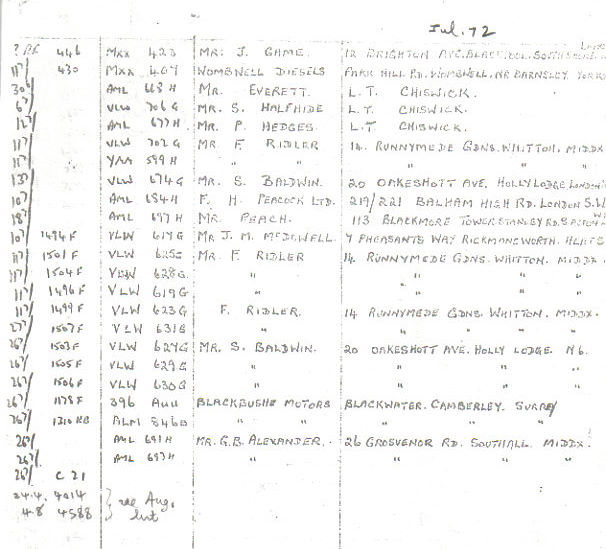 Jul. 72
446 MXX 423 MR. J. GAME. 12 BRIGHTON AVE.
117/ 430 MXX 467 WOMBWELL DIESELS PARK HILL RD. WOMBWELL, NR BARNSLEY. YORKS
306/ AML 668 H MR. EVERETT. L.T. CHISWICK.
67/ VLW 706 G MR. S. HALFHIDE L.T. CHISWICK.
127/ AML 677 H MR. P. HEDGES. L.T. CHISWICK.
117/ VLW 702 G MR. F. RIDLER 14. RUNNYMEDE GDNS. WHITTON. MIDDX
117/ YAM 599 H " " " "
137/ VLW 674 G MR. S. BALDWIN. 20 OAKESHOTT AVE. HOLLY LODGE LONDON
107/ AML 684 H F. H. PEACOCK LTD. 219/221 BALHAM HIGH RD. LONDON S.W
187/ AML 697 H MR. PEACH. 113 BLACKMORE TOWER. STANLEY RD.
107/ 1494 F VLW 617 G MR J. M. McDOWELL. 7 PHEASANTS WAY RICKMANSWORTH. HERTS
117/ 1501 F VLW 625 G MR. F. RIDLER 14 RUNNYMEDE GDNS. WHITTON. MIDDX.
117/ 1504 F VLW 628 G " " "
117/ 1496 F VLW 619 G " " "
117/ 1499 F VLW 623 G F. RIDLER. 14 RUNNYMEDE GDNS. WHITTON. MIDDX.
1507 F VLW 631 G " " "
267/ 1503 F VLW 627 G MR. S. BALDWIN. 20 OAKESHOTT AVE. HOLLY LODGE. N6.
267/ 1505 F VLW 629 G " " "
267/ 1506 F VLW 630 G " " "
267/ 1178 F 396 AUU BLACKBUSHE MOTORS BLACKWATER. CAMBERLEY. SURREY
267/ 1310 ALM 846 B " " "
267/ AML 691 H MR. G.B. ALEXANDER. 26 GROSVENOR RD. SOUTHALL. MIDDX.
267/ AML 693 H " " " "
267/ C 21
24.4. 4014 } see Aug.
4.8 4588 list